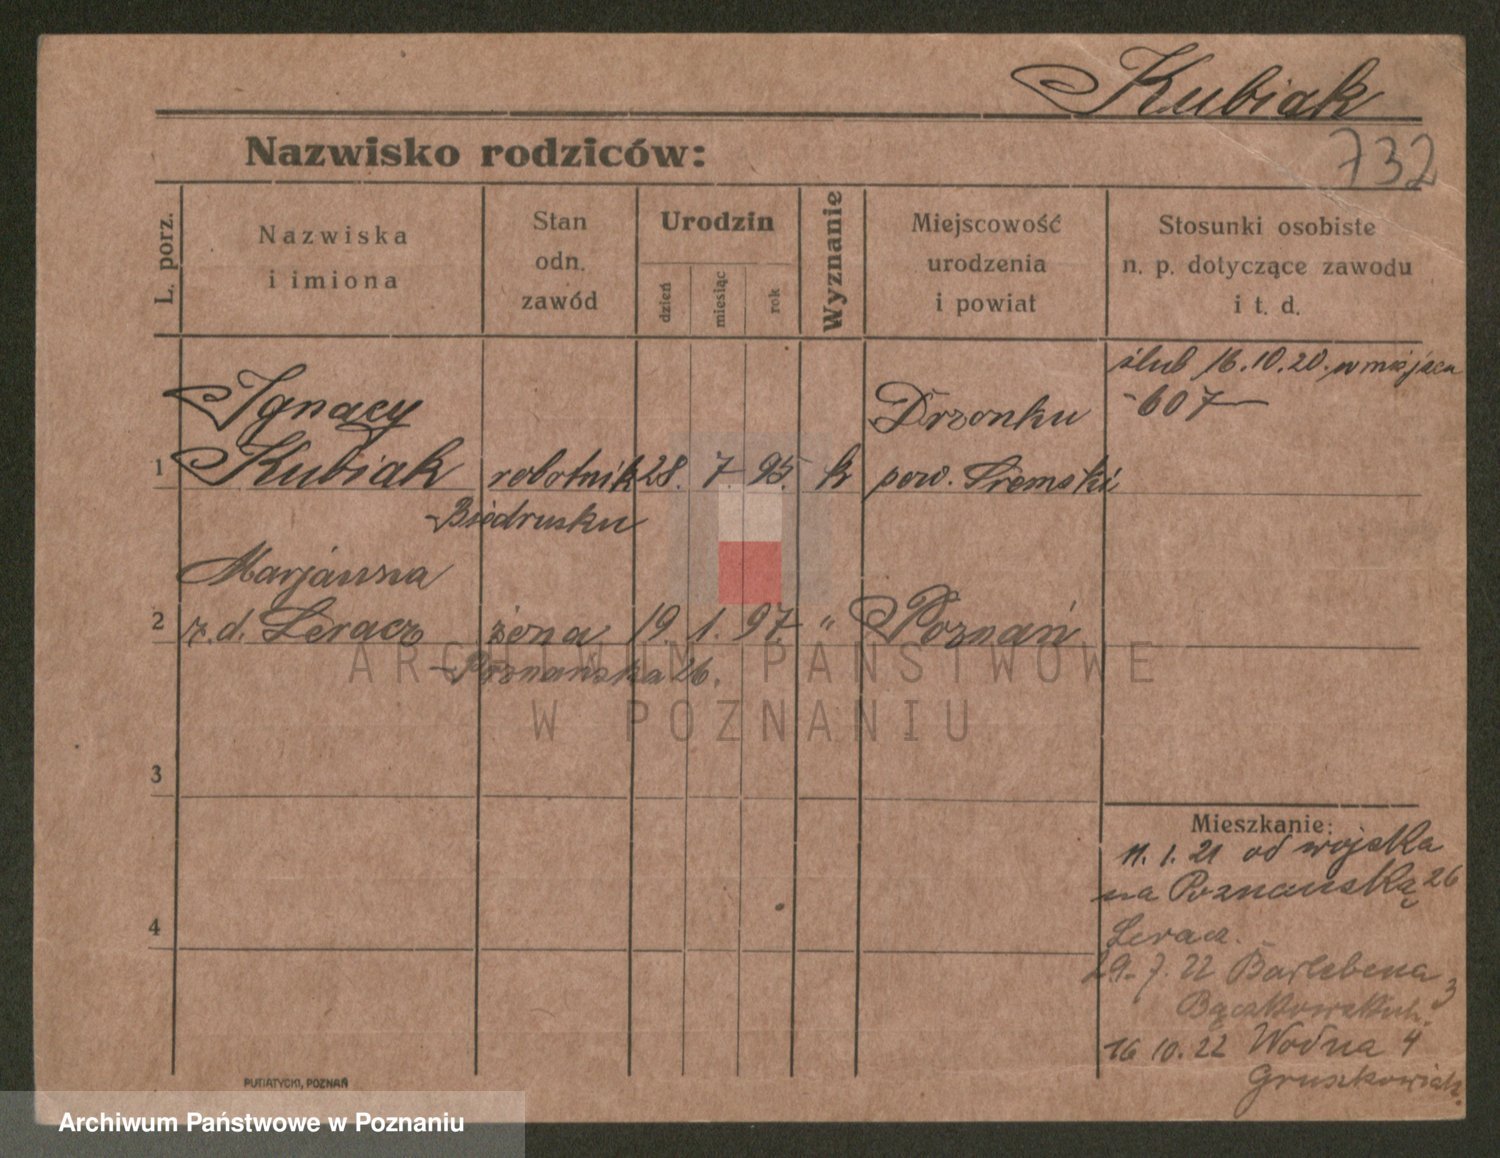 Kubiak
Nazwisko rodziców:
732
L. porz.
Nazwiska
i imiona
Stan
odn.
zawód
Urodzin
dzień
miesiąc
rok
Wyznanie
Miejscowość
urodzenia
i powiat
Stosunki osobiste
n. p. dotyczące zawodu
i t. d.
ślub 16.10.20. w miejscu
-607-
Ignacy
Drzonku
1 Kubiak robotnik 28. 7. 95. k pow. Śremski
-Biedrusku
Marjanna
2 z. d. Leracz żona 19. 1. 97. " Poznań
-Poznańska 26.
3
Mieszkanie:
11.1.21 od wojska
na Poznańską 26
Leracz.
4
29.7.22 3
16 10.22 Wodna 4
PUTIATYCKI, POZNAŃ
ARCHIWUM PAŃSTWOWE
W POZNANIU
Archiwum Państwowe w Poznaniu